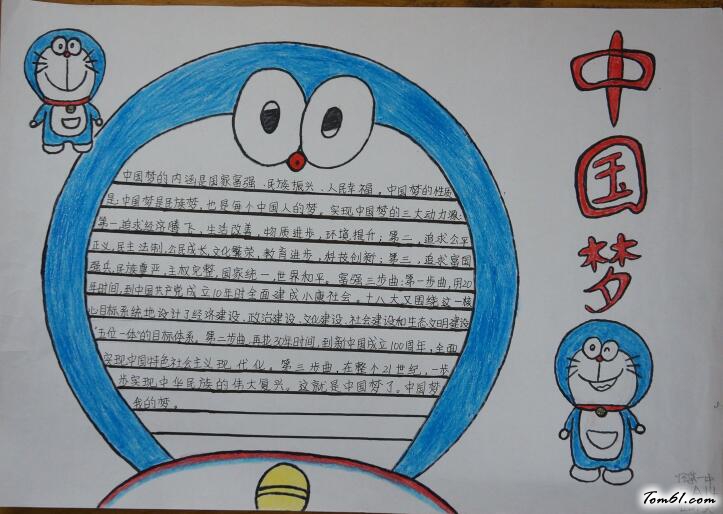 中国梦
中国梦的内涵是国家富强、民族振兴、人民幸福。中国梦的性质
是:中国梦是民族梦,也是每个中国人的梦。实现中国梦的三大动力源:
第一,追求经济腾飞,生活改善,物质进步,环境提升;第二,追求公平
正义,民主法制,公民成长,文化繁荣,教育进步,科技创新;第三,追求富国
强兵,民族尊严,主权完整,国家统一,世界和平。富强三步曲:第一步曲,用20
年时间,到中国共产党成立10年时全面建成小康社会。十八大又围绕这一核
心目标系统地设计了经济建设、政治建设、文化建设、社会建设和生态文明建设
"五位一体"的目标体系。第二步曲,再抜30年时间,到新中国成立100周年,全面
实现中国特色社会主义现代化。第三步曲,在整个21世纪,一步
步实现中华民族的伟大复兴。这就是中国梦了。中国梦
我的梦。
Tom61.com